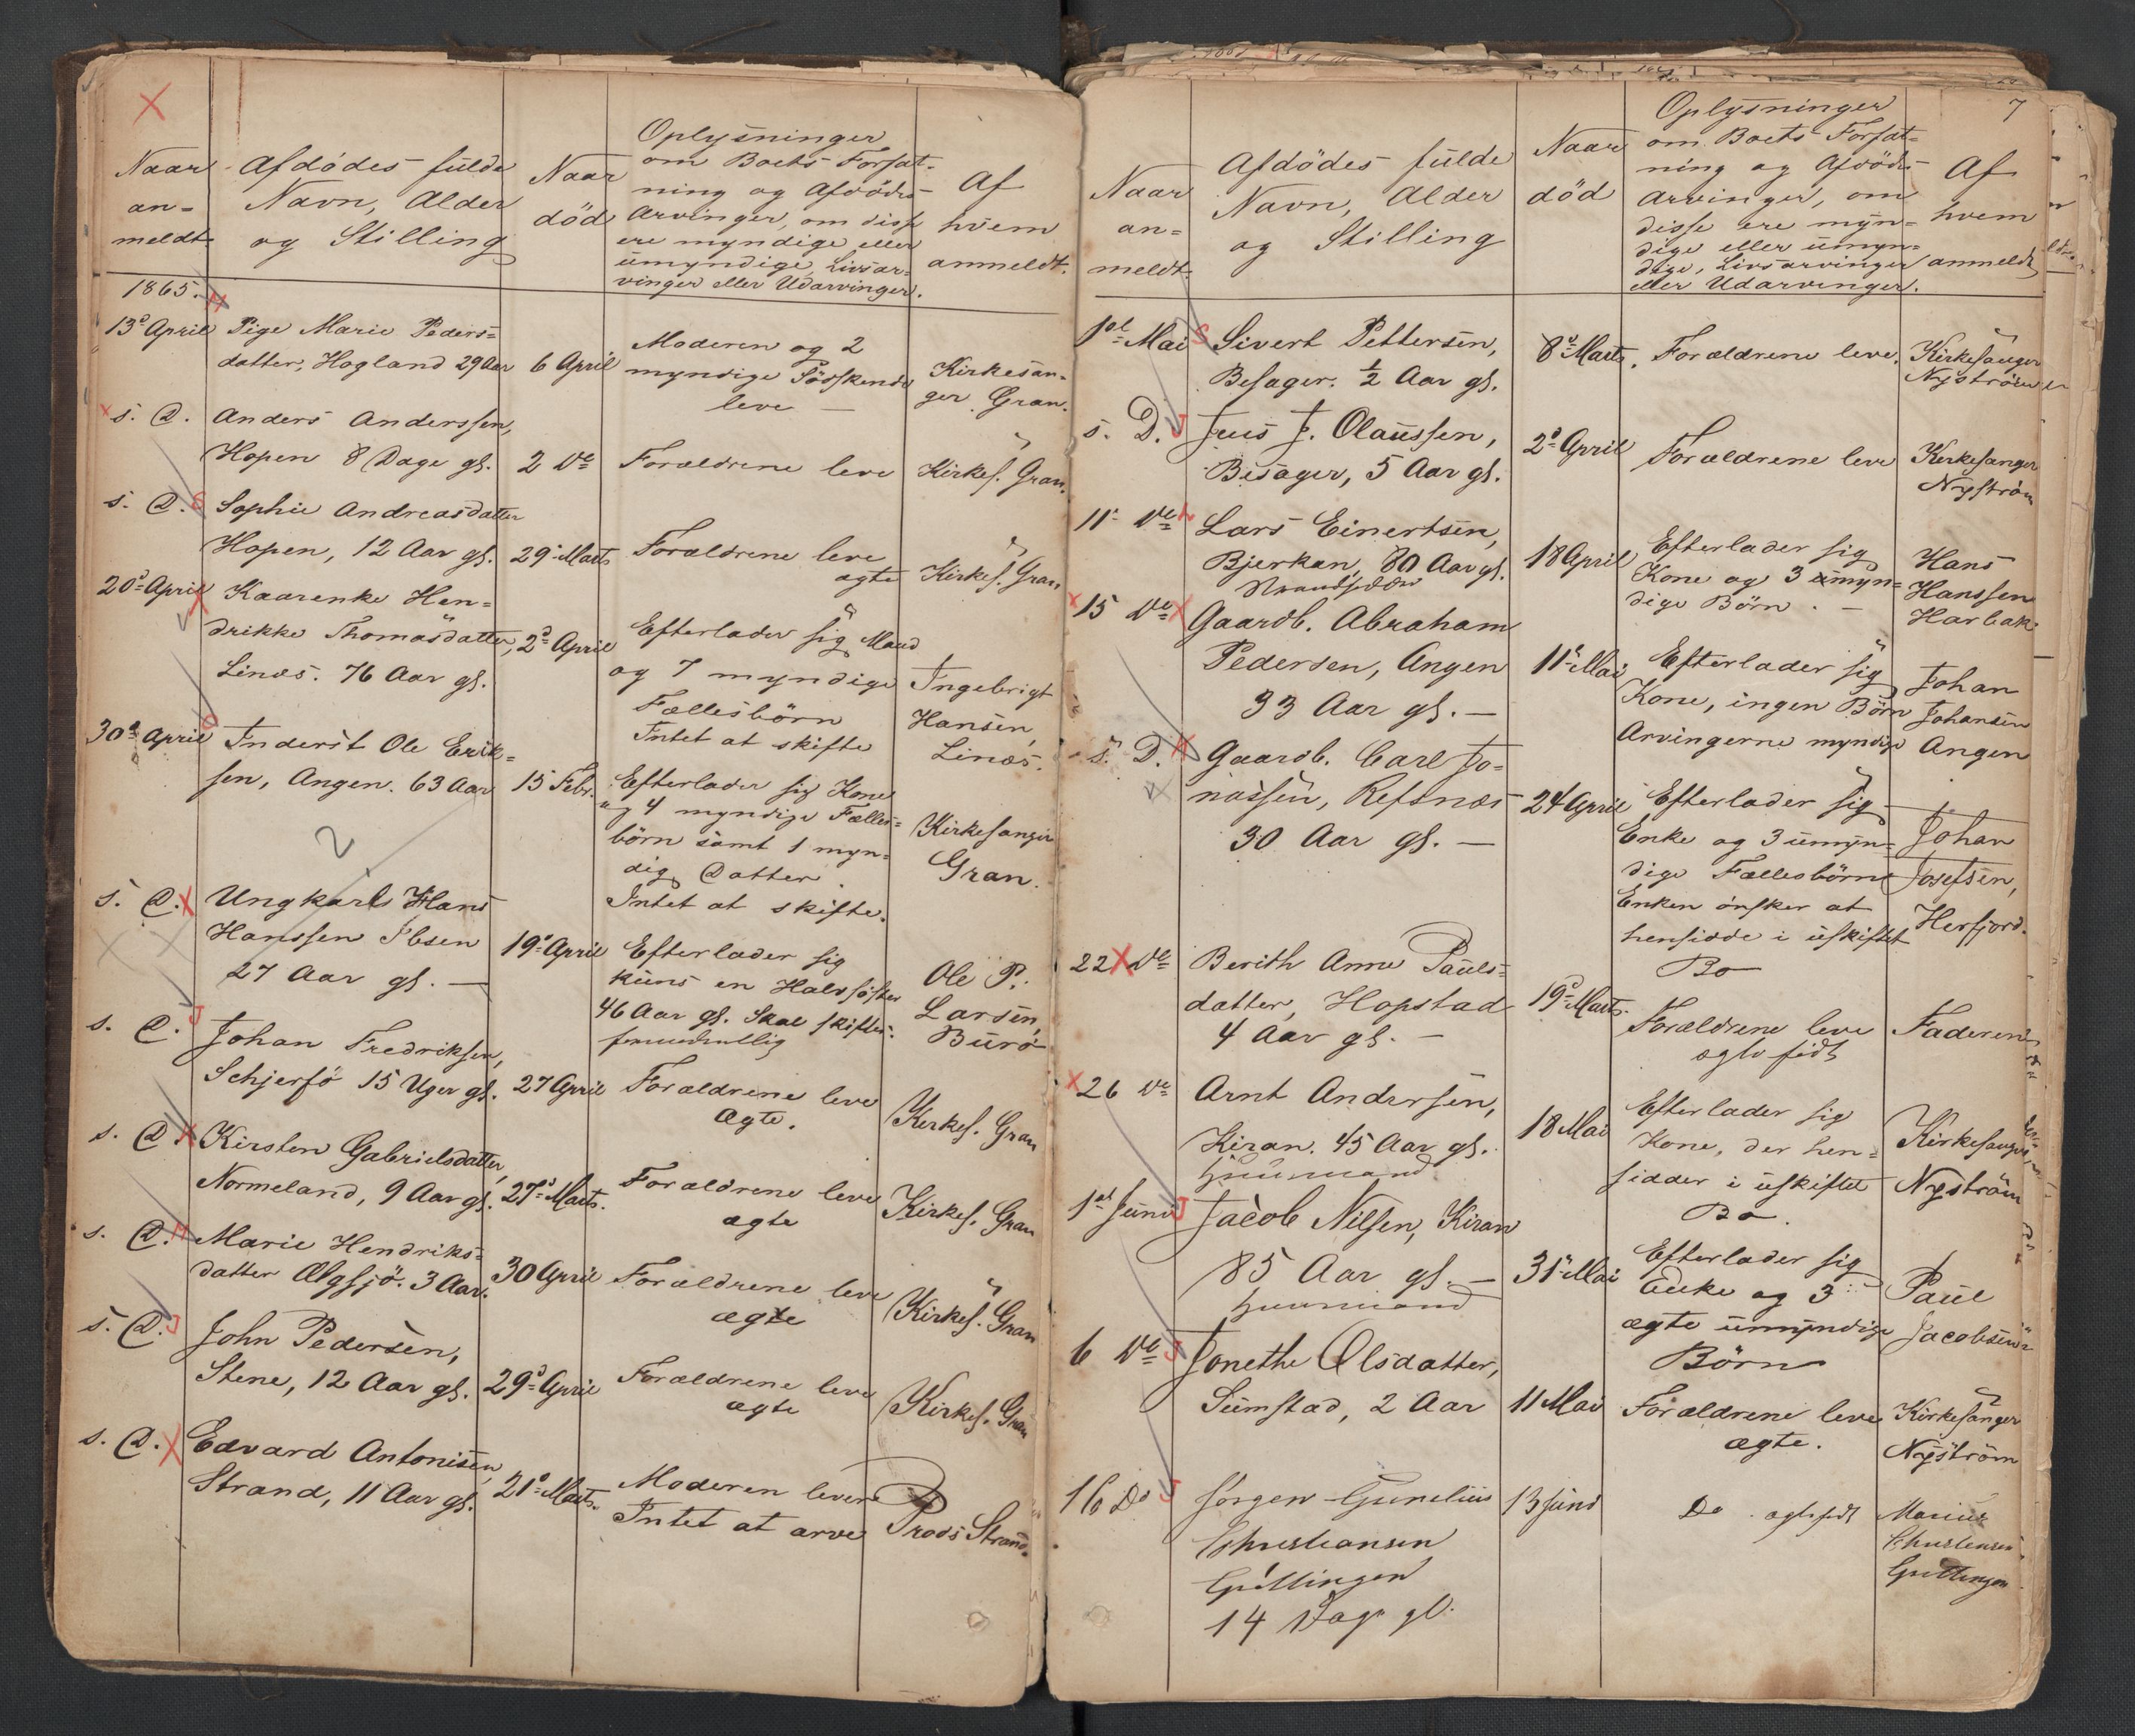 Naar
an-
meldt
Afdödes fulde
Navn, Alder
og Stilling
Naar
död
Oplysninger
om Boets Forfat-
ning og Afdödes
Arvinger, om disse
ere myndige eller
umyndige, Livsar-
vinger eller Udarvinger.
Af
hvem
anmeldt.
1865.
13de April
Pige Marie Peders-
datter, Hogland 29 Aar
6 April
Moderen og 2
myndige Södskende
leve —
Kirkesan-
ger Gran.
s. D.
Anders Anderssen,
Hopen 8 Dage gl.
2 do
Forældrene leve
Kirkes. Gran.
s. D. S
Sophie Andreasdatter
Hopen, 12 Aar gl.
29 Marts
Forældrene leve
ægte
Kirkes. Gran
20de April
Kaarenke Hen-
drikke Thomasdatter,
Linæs. 76 Aar gl.
2d April
Efterlader sig Mand
og 7 myndige
Fællesbörn
Intet at skifte
Ingebrigt
Hansen,
Linæs.
30de April
Inderst Ole Erik-
sen, Angen. 63 Aar
15 Febr.
Efterlader sig Kone
og 4 myndige Fælles-
börn samt 1 myn-
dig Datter.
Intet at skifte.
Kirkesanger
Gran.
2
s. D.
Ungkarl Hans
Hanssen Ibsen
27 Aar gl. —
19de April
Efterlader sig
kuns en Halvsöster
46 Aar gl. Skal skiftes
Ole P.
Larsen,
Burö
s. D. J
Johan Fredriksen,
Schjerfö 15 Uger gl.
27 April
Forældrene leve
Ægte.
Kirkes. Gran
s. D. K
Kirsten Gabrielsdatter,
Normeland, 9 Aar gl.
27de Marts.
Forældrene leve
ægte
Kirkes. Gran
s. D. M
Marie Hendriks-
datter Ælgsjö. 3 Aar.
30 April
Forældrene leve
ægte
Kirkes. Gran
s. D. J
John Pedersen,
Stene, 12 Aar gl.
29de April
Forældrene leve
ægte
Kirkes. Gran
s. D.
Edvard Antonisen,
Strand, 11 Aar gl.
21de Marts.
Moderen lever
Intet at arve
Prods Strand.
7
Naar
an-
meldt.
Afdödes fulde
Navn, Alder
og Stilling
Naar
död
Oplysninger
om Boets Forfat-
ning og Afdödes
Arvinger, om
disse ere myn-
dige eller umyn-
dige, Livsarvinger
eller Udarvinger.
Af
hvem
anmeldt
1ste Mai S
Sivert Pettersen,
Besager. ½ Aar gl.
8de Marts.
Forældrene leve.
Kirkesanger
Nyström
s. D. J
Jens J. Olaussen,
Besager, 5 Aar gl.
2de April
Forældrene leve
Kirkesanger
Nyström
11 do L
Lars Einertsen,
Bjerkan, 80 Aar gl.
18 April
Efterlader sig
Kone og 3 myn-
dige Börn. —
Hans
Hanssen
Harbak
15 do
Gaardb. Abraham
Pedersen, Angen
33 Aar gl. —
11te Mai
Efterlader sig
Kone, ingen Börn
Arvingerne myndige
Johan
Johansen
Angen
s. D.
Gaardb. Carl Jo-
nassen, Refsnæs
30 Aar gl. —
24 April
Efterlader sig
Enke og 3 umyn-
dige Fællesbörn
Enken önsker at
hensidde i uskiftet
Bo
Johan
Josefsen,
Herfjord.
22 do
Berith Anne Pauls-
datter, Hopstad
4 Aar gl. —
19de Marts.
Forældrene leve
ægte födt
Faderen
26 do
Arnt Andersen,
Kiran. 45 Aar gl.
Huusmand
18 Mai
Efterlader sig
Kone, der hen-
sidder i uskiftet
Bo.
Kirkesanger
Nyström
1ste Juni J
Jacob Nilsen, Kiran
85 Aar gl. —
Huusmand
31te Mai
Efterlader sig
Enke og 3
ægte umyndige
Börn
Paul
Jacobsen
6 do J
Jonethe Olsdatter,
Sumstad, 2 Aar
11 Mai
Forældrene leve
ægte.
Kirkesanger
Nyström
16 Do J
Jörgen Gunelius
Christiansen
Guttingen
14 Dage gl.
13 Juni
Do ægtefödt
Marius
Christensen
Guttingen